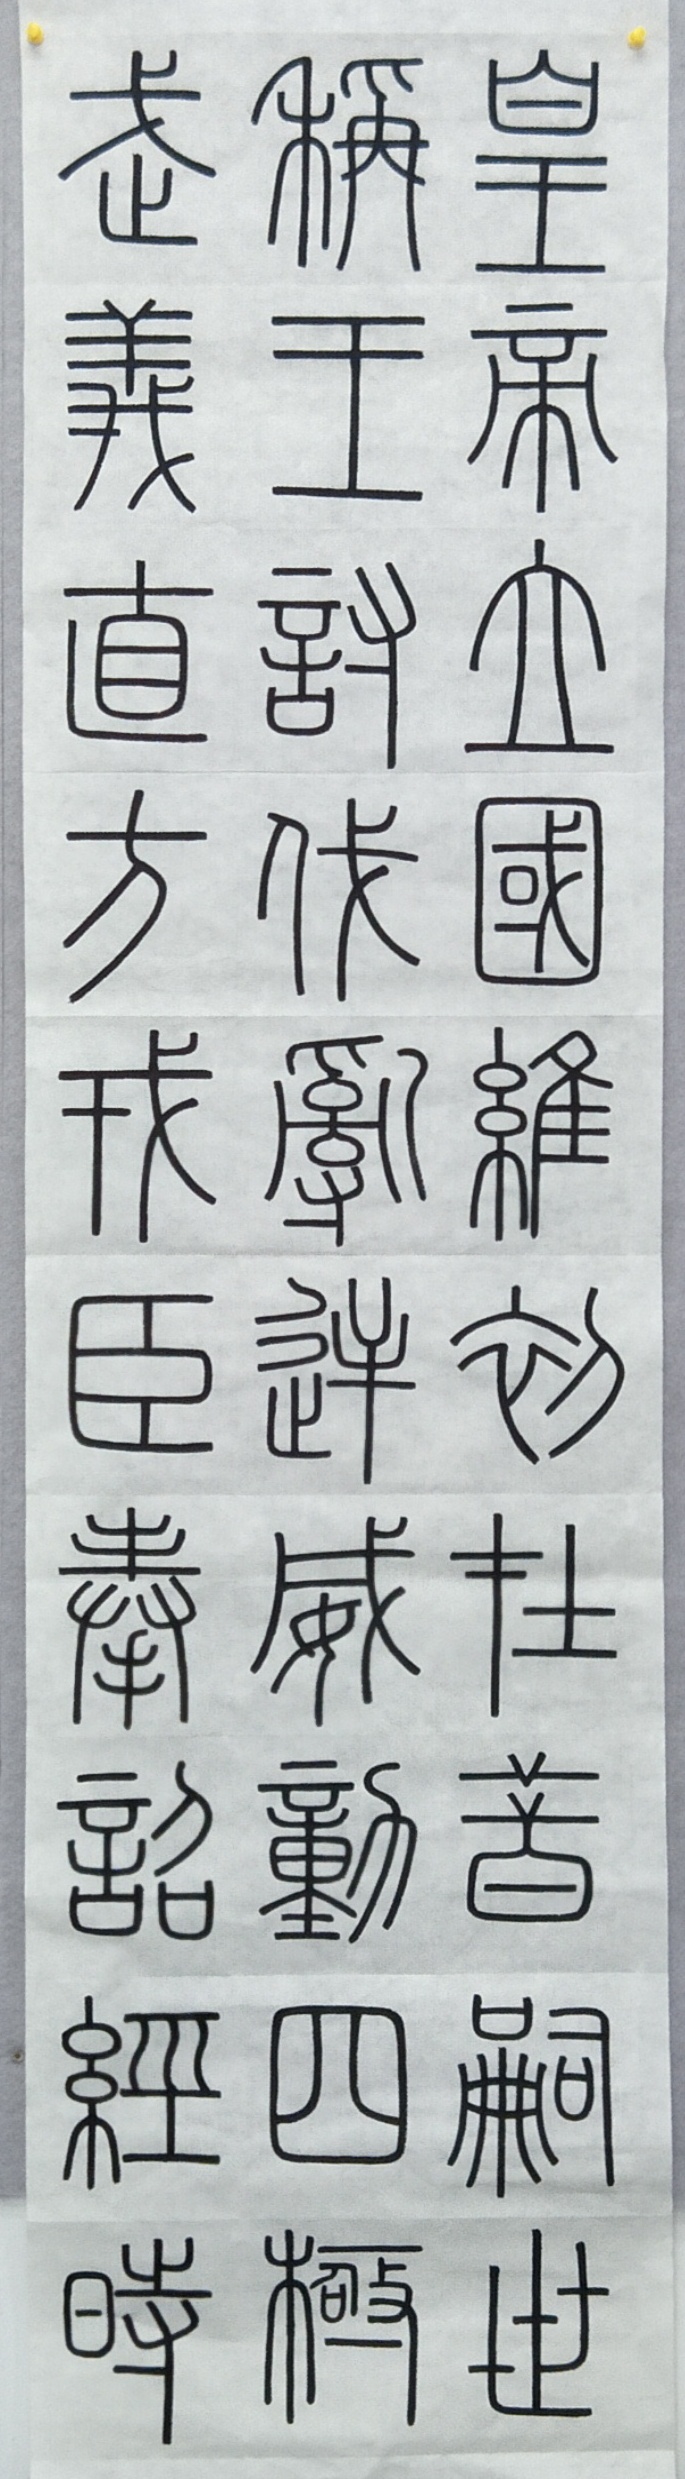 皇帝立國維初在昔嗣世
稱王討伐亂逆威動四極
武義直方戎臣奉詔經時